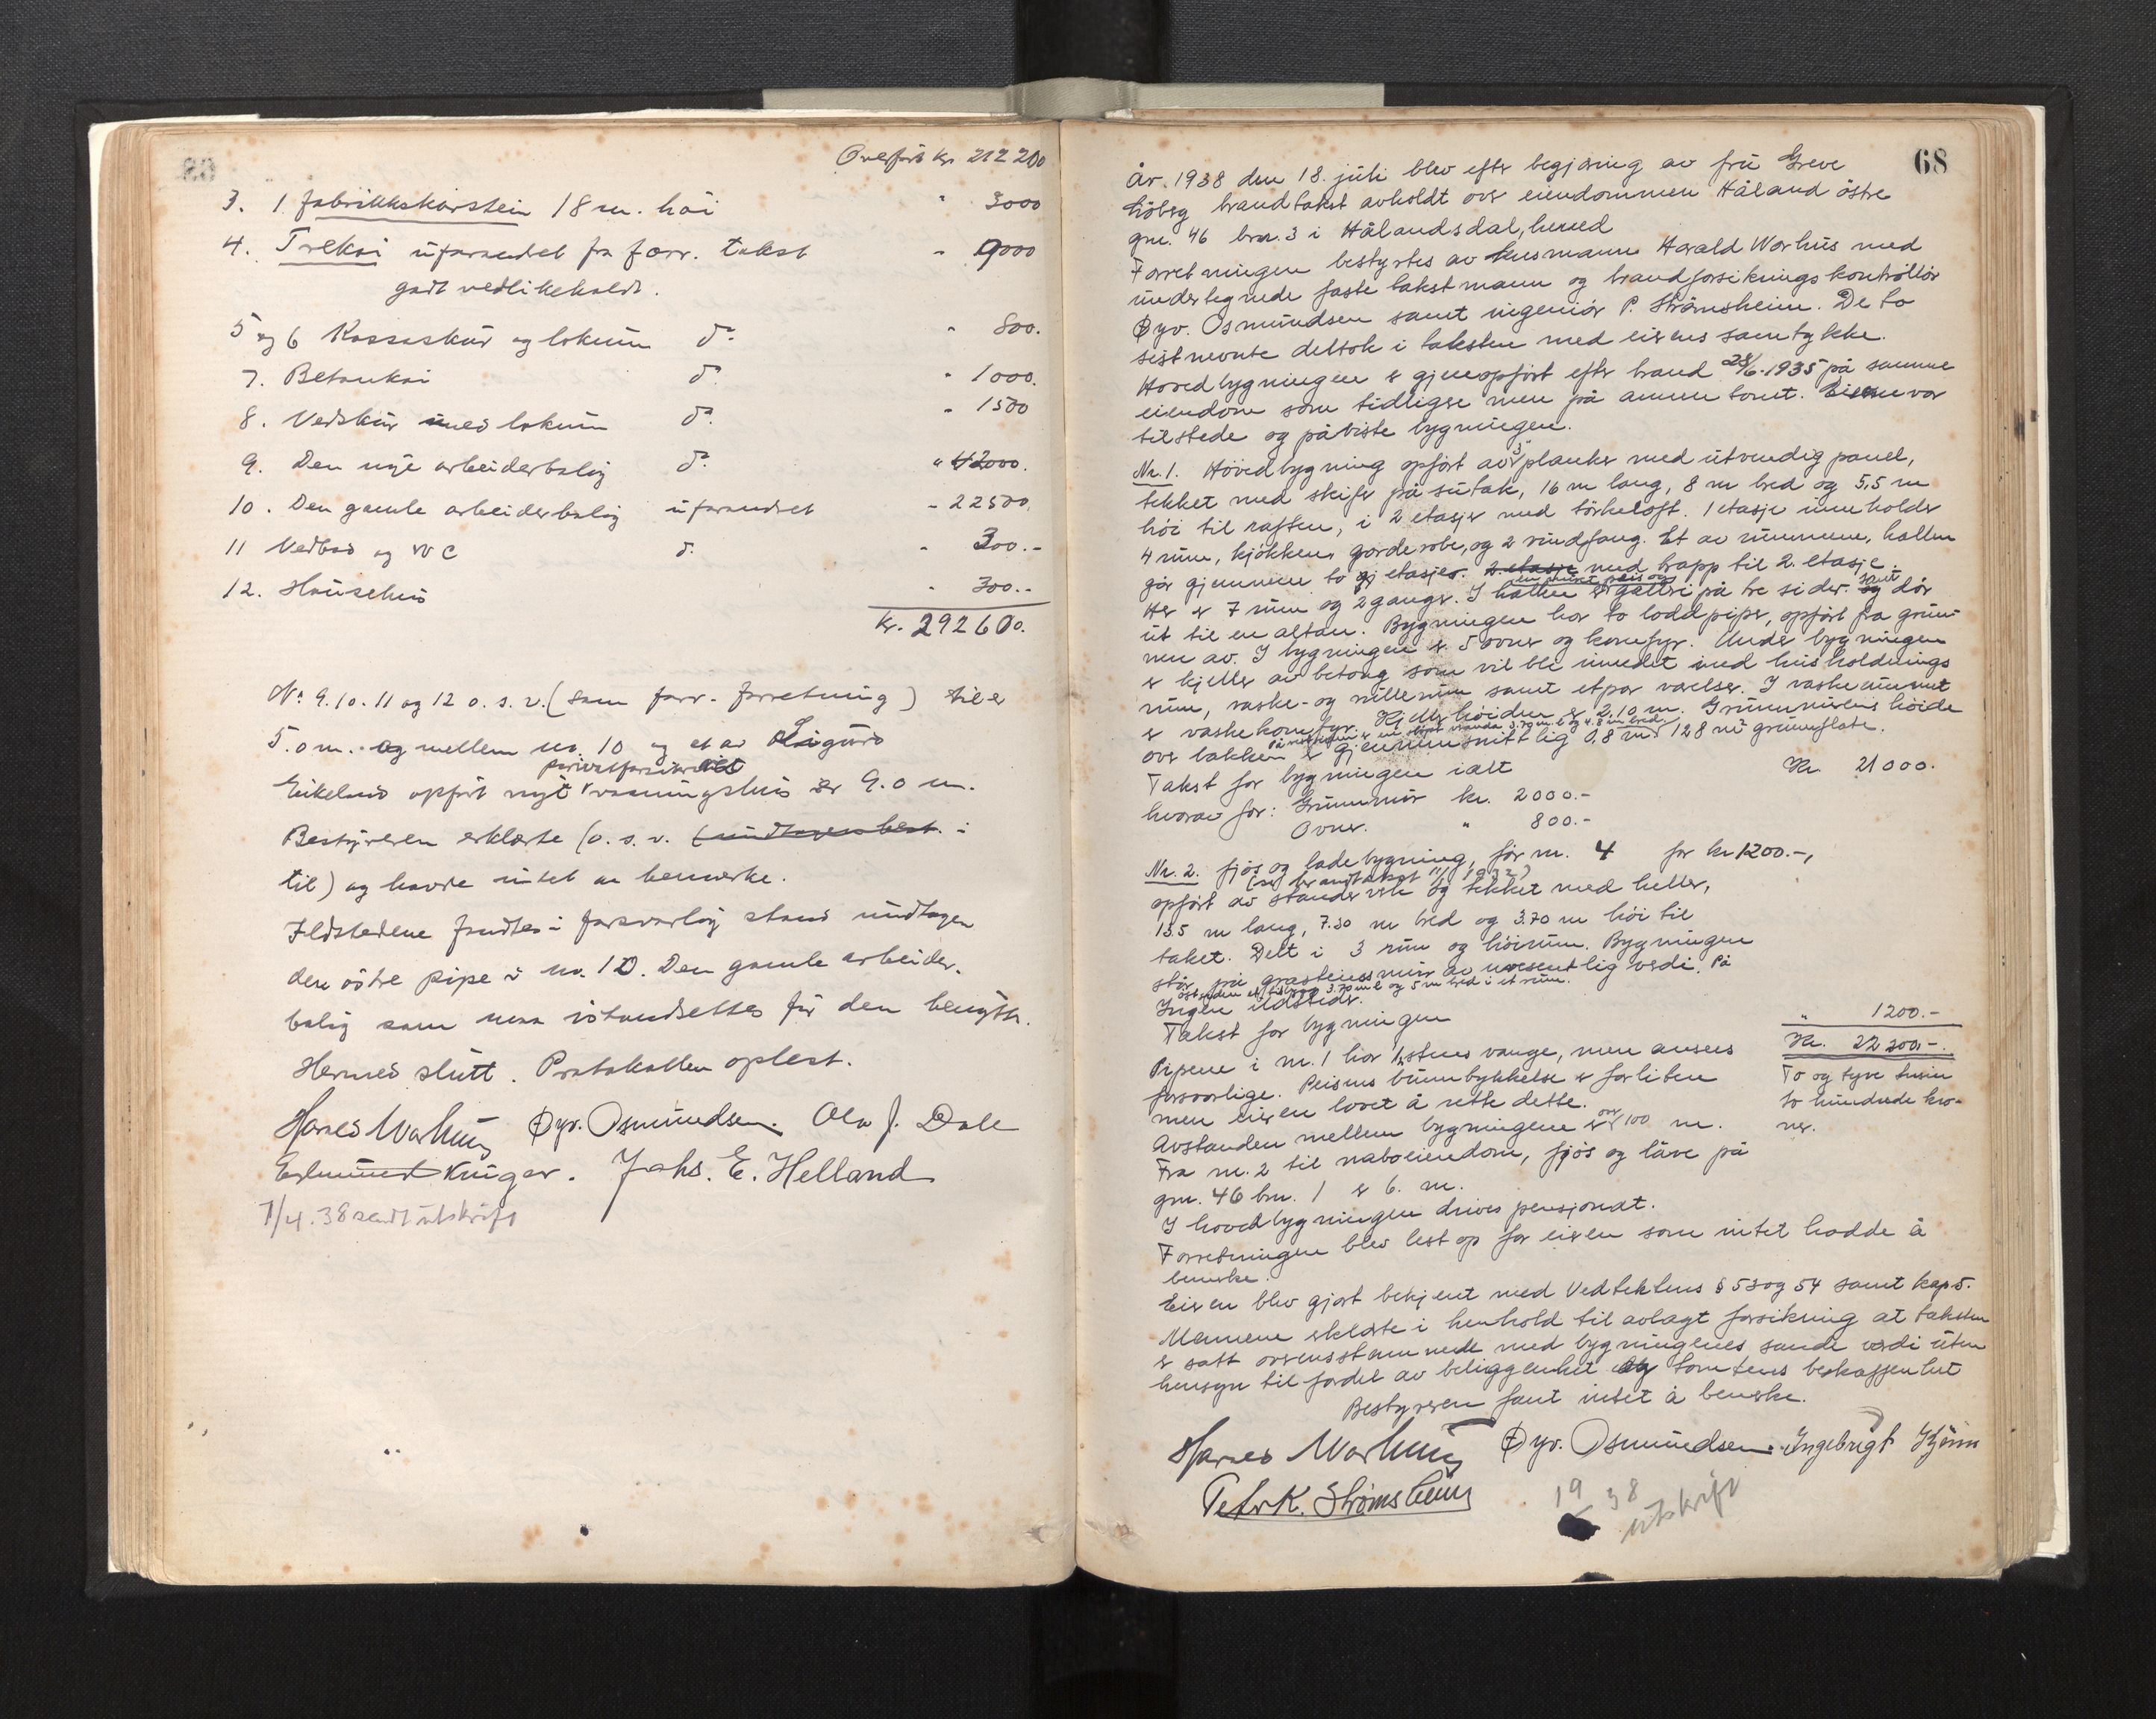 Overført kr. 212 200
3. 1 fabrikkskorstein 18 m. høi " 3000
4. Trekai uforandret fra forr. takst - 9000
godt vedlikeholdt.
5 og 6 Kassaskur og lokum do " 800.
7. Betonkai do " 1000.
8. Vedskur med lokum do - 1500
9. Den nye arbeiderbolig do " 42000.
10. Den gamle arbeiderbolig uforandret - 22500.
11 Vedbod og WC do - 300.-
12. - 300.-
Kr. 292600.
No. 9. 10. 11 og 12 o. s. v. (som forr. forretning) til
5.0 m. og mellem nr. 10 og et av Sigurd
privatforsikret
Eikeland opført nyt våningshus er 9.0 m.
Bestyreren erklærte (o. s. v. i
til) og havde intet at bemerke.
Ildstedene fandtes i forsvarlig stand undtagen
den östre pipe i nr. 10. Den gamle arbeider-
bolig som maa istandsettes før den benyttes.
Hermed slutt. Protokollen oplest.
Harald Warhus Øyv. Osmundsen. Ola J. Dale
Edmund Krüger. Johs. E. Helland
7/4. 38 sendt utskrift
68
År. 1938 den 18. juli blev efter begjæring av fru Greve
brandtakst avholdt over eiendommen Håland östre
gnr. 46 bnr. 3 i Hålandsdal, herred
Forretningen bestyrtes av lensmann Harald Warhus med
undertegnede faste takstmann og brandforsikringskontrollör
Øyv. Osmundsen samt ingeniör P. Strömsheim. De to
sistnevnte deltok i taksten med eierens samtykke.
Hovedbygningen er gjenopfört efter brand 28/6.1935 på samme
eiendom som tidligere men på annen tomt. Eieren var
tilstede og påviste bygningen.
Nr. 1. Hovedbygning opfört av 3" planker med utvendig panel,
tekket med skifer på sutak, 16 m lang, 8 m bred og 5,5 m
höi til raften, i 2 etasjer med törkeloft. 1 etasje inneholder
4 rum, kjökken, garderobe, og 2 vindfang. Et av rummene, hallen
går gjennem to etasjer. 2. etasje med trapp til 2. etasje.
en muret peis og samt
Her er 7 rum og 2 ganger. I hallen er galleri på tre sider og dör
ut til en altan. Bygningen har to loddpiper, opfört fra grun-
nen av. I bygningen er 5 ovner og komfyr. Under bygningen
er kjeller av betong som vil bli innredet med husholdnings
rum, vaske- og rullerum samt et par værelser. I vaskerummet
er vaskekomfyr. Kjellerhöiden er 2,10 m. Grunnmurens höide
over bakken er gjennemsnittlig 0,8 m 128 m² grunnflate.
Takst for bygningen ialt Kr. 21 000.
hvorav for: Grunnmur kr. 2000.-
Ovner. " 800.-
Nr. 2. fjös og ladebygning, för nr. 4 for kr 1200.-,
(se brandtakst 11/ 1932)
opfört av standerverk og tekket med heller,
13.5 m lang, 7.30 m bred og 3.70 m höi til
taket. Delt i 3 rum og höirum. Bygningen
står på gråsteinsmur av uvesentlig verdi. På
östenden et tilbygg 3.70 m l. og 5 m bred i et rum.
Ingen ildsteder.
Takst for bygningen " 1200.-
Kr. 22 200.-
To og tyve tusin
to hundrede kro-
ner.
Pipene i nr. 1 har 1/2 stens vange, men ansees
forsvarlige. Peisens bunntykkelse er for liten
men eieren lovet å rette dette.
Avstanden mellem bygningene er over 100 m.
Fra nr. 2 til naboeiendom, fjös og låve på
gnr. 46 bnr. 1 er 6. m.
I hovedbygningen drives pensjonat.
Forretningen blev lest op for eieren som intet hadde å
bemerke.
Eieren blev gjort bekjent med Vedtektens § 53 og 54 samt kap. 5.
Mennene erklærte i henhold til avlagt forsikring at taksten
er satt overensstemmende med bygningenes sande verdi uten
hensyn til fordel av beliggenhet og tomtens beskaffenhet
Bestyreren fant intet å bemerke.
Harald Warhus Øyv. Osmundsen. Ingebrigt Hjönn
Peter K. Strømsheim
19 38
utskrift